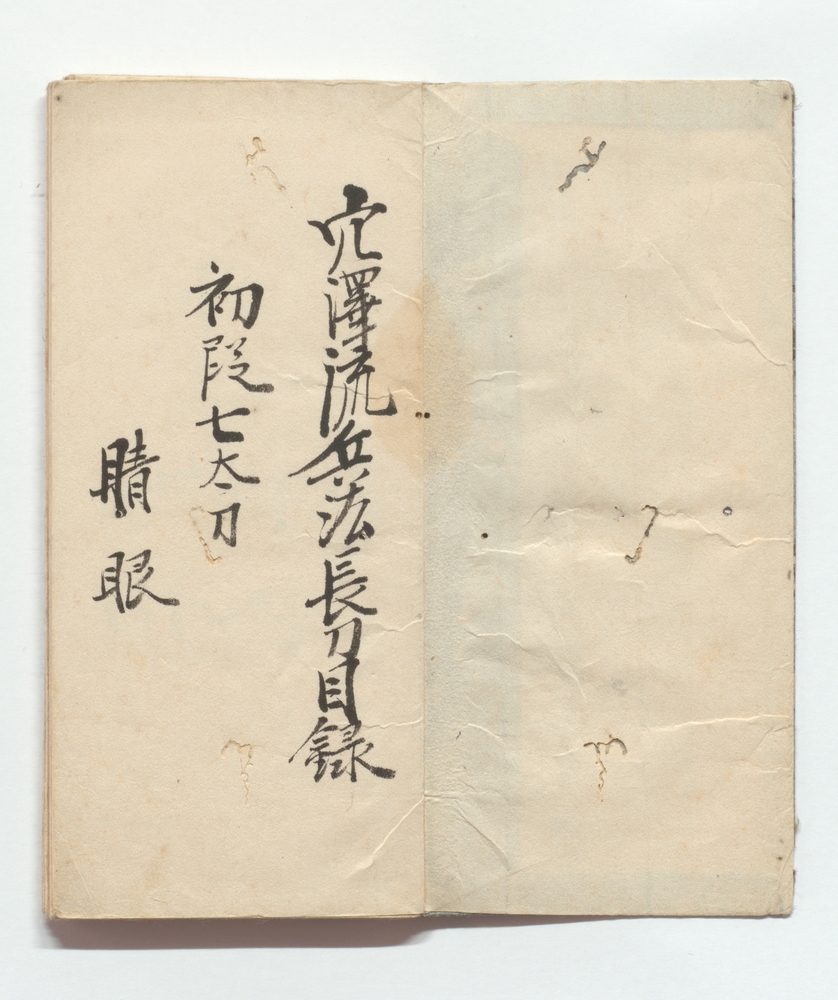 穴澤流兵法長刀目録
初段七太刀
睛眼